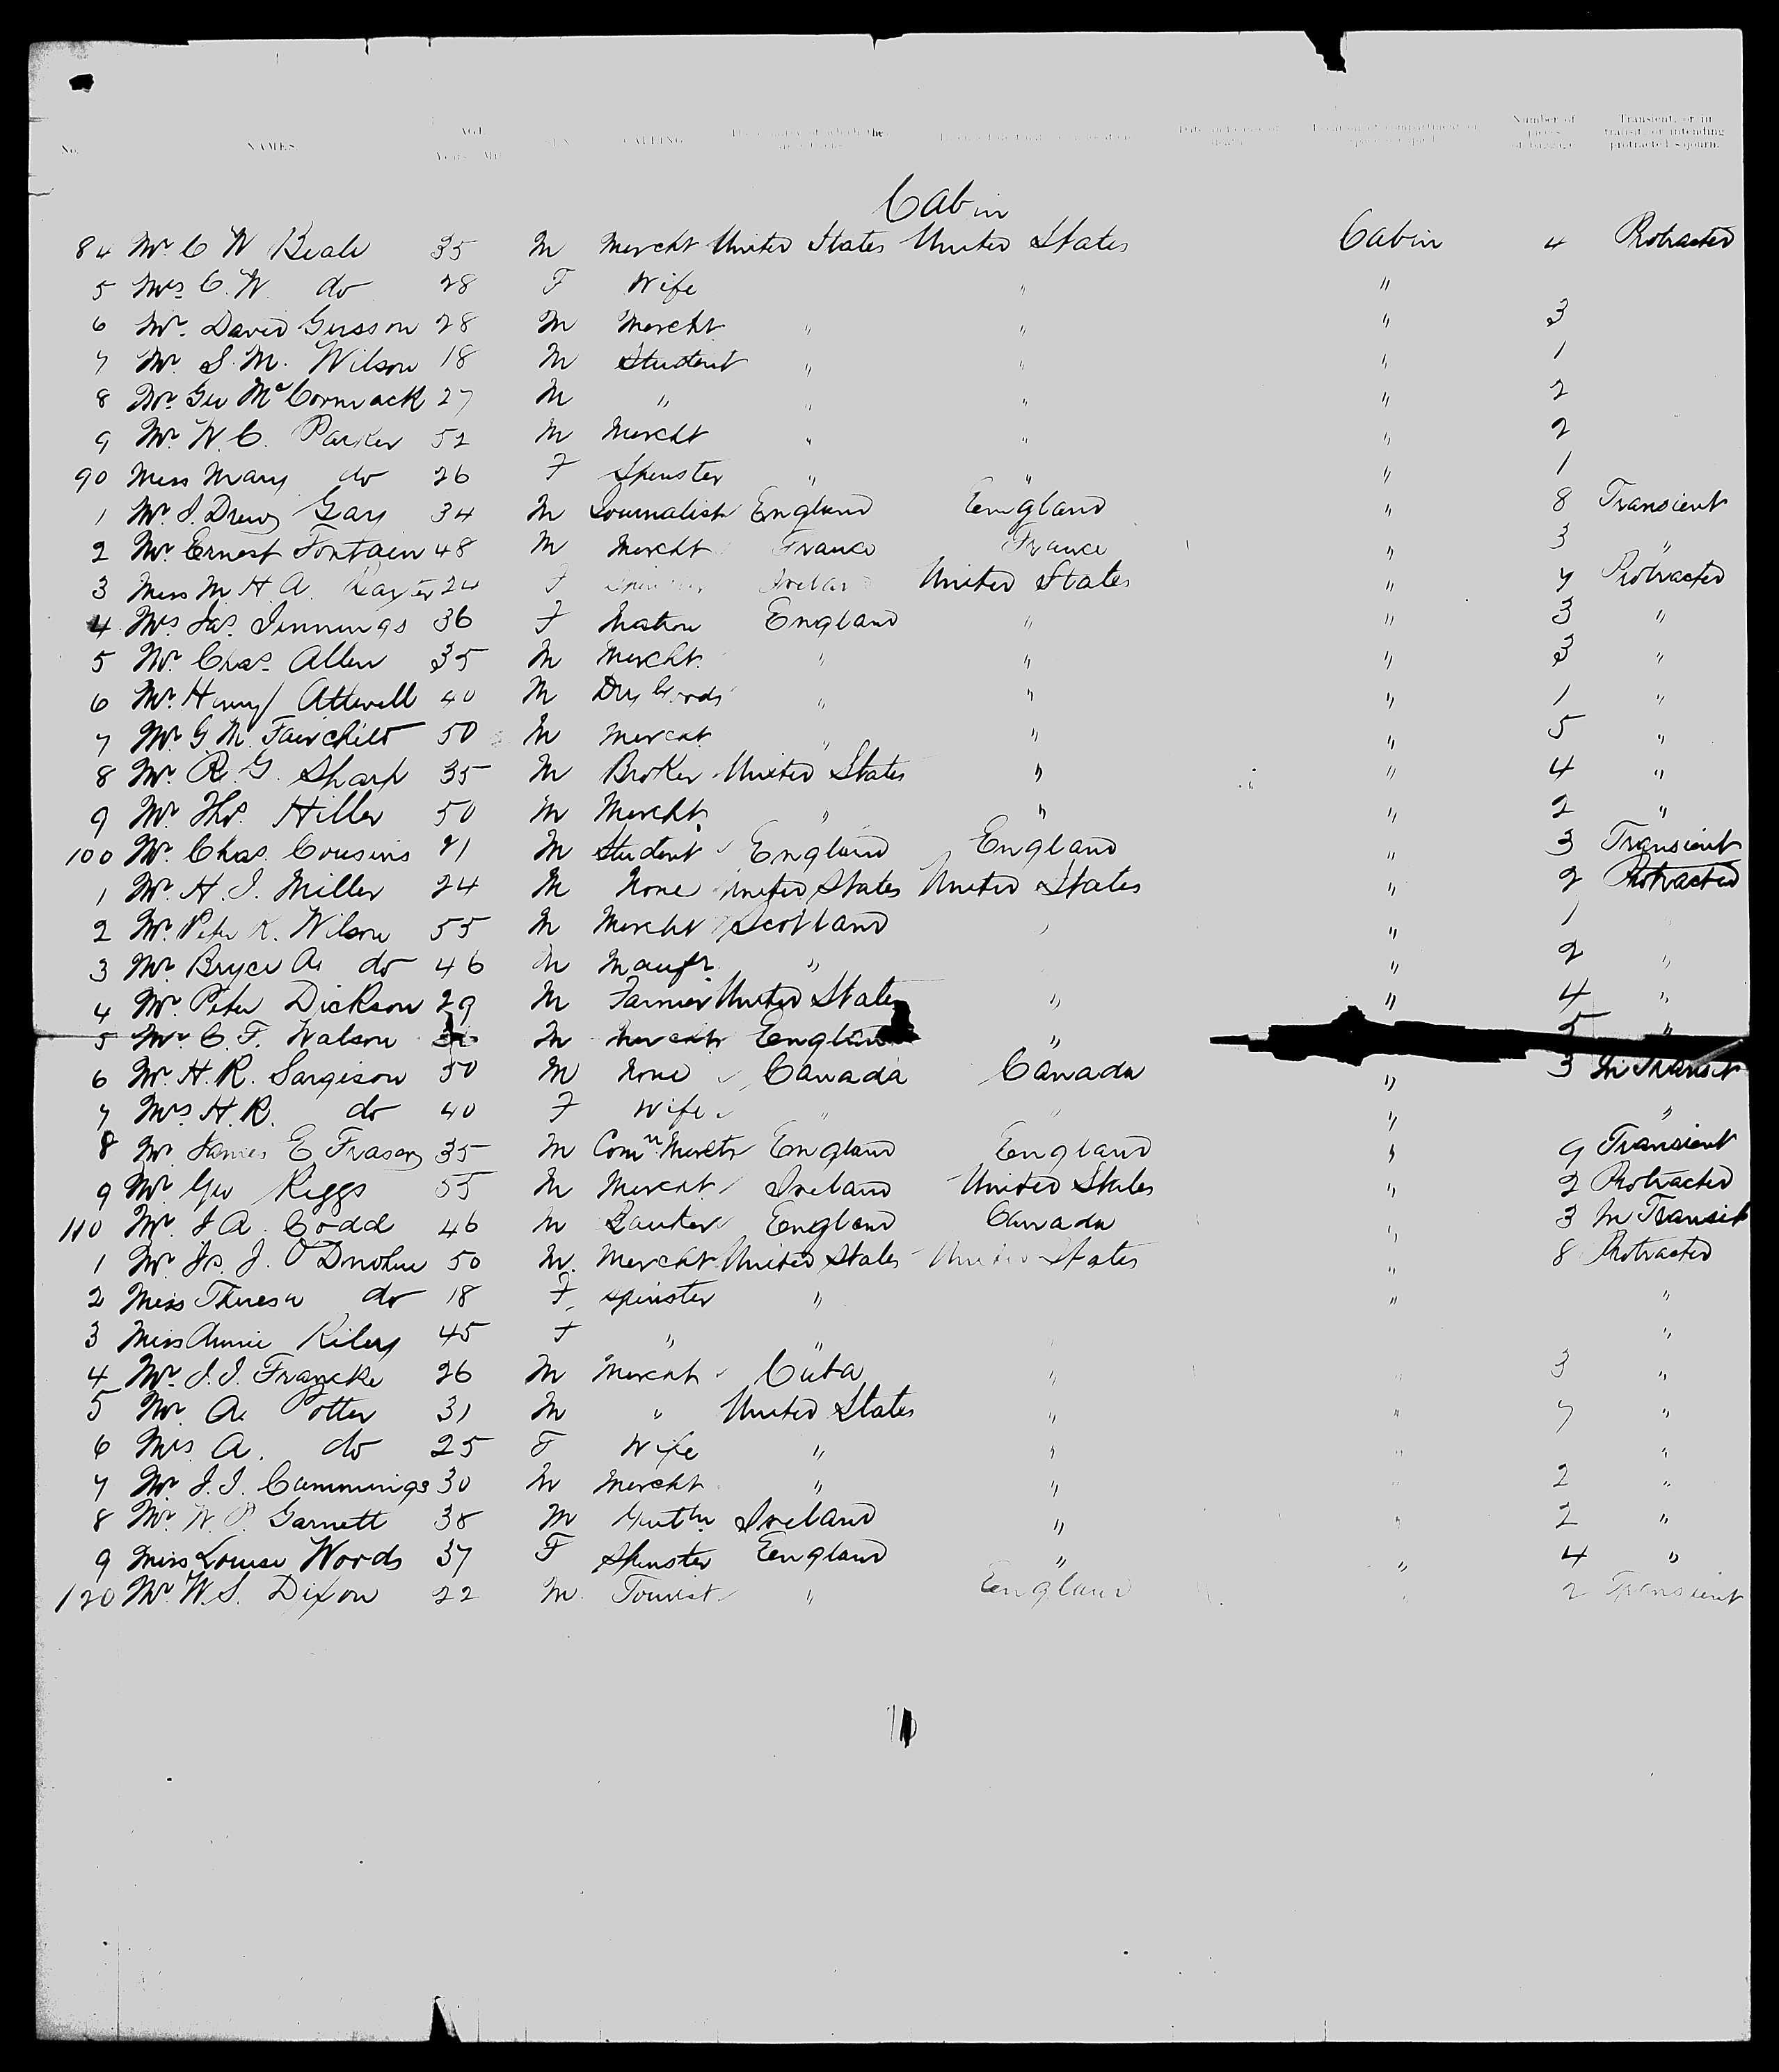 No. NAMES. AGE. Years. Mths. SEX. CALLING. the Number of pieces of baggage Transient, or in transit, or intending protracted sojourn.
Cabin
84 Mr. C W Beale 35 M Mercht United States United States Cabin 4 Protracted
5 Mrs C. W do 28 F Wife " "
6 Mr. David Gusson 28 M Mercht " " " 3
7 Mr S. M. Wilson 18 M Student " " " 1
8 Mr. Geo McCormack 27 M " " " " 2
9 Mr. W. C. Parker 52 M Mercht " " " 2
90 Miss Mary do 26 F Spinster " " " 1
1 Mr. J. Drew Gay 34 M Journalist England England " 8 Transient
2 Mr Ernest Fontain 48 M Mercht France France " 3 "
3 Miss M. H. A. 24 F United States " 7 Protracted
4 Mrs Jas. Jennings 36 F Matron England " " 3 "
5 Mr. Chas. Allen 35 M Mercht " " " 3 "
6 Mr. Harry Attwell 40 M Dry Goods " " " 1 "
7 Mr. G M. Fairchild 50 M Mercht " " " 5 "
8 Mr. R. G. Sharp 35 M Broker United States " " 4 "
9 Mr Thos. Hiller 50 M Mercht " " " 2 "
100 Mr. Chas. Cousins 21 M Student England England " 3 Transient
1 Mr. H. J. Miller 24 M None United States United States " 2 Protracted
2 Mr. Peter K. Wilson 55 M Mercht Scotland " " 1 "
3 Mr Bryce A. do 46 M Manfr. " " 2 "
4 Mr. Peter Dickson 29 M Farmer United States " " 4 "
5 Mr C. F. Watson M Mercht England " 5 "
6 Mr. H. R. Sargison 50 M None Canada Canada " 3 In Transit
7 Mrs H. R. do 40 F Wife " " " "
8 Mr. James E Fraser 35 M Comn. Mercht England England " 9 Transient
9 Mr Geo Riggs 55 M Mercht Ireland United States " 2 Protracted
110 Mr. J A. Codd 46 M Banker England Canada " 3 In Transit
1 Mr Js. J. O'Donohue 50 M. Mercht United States United States " 8 Protracted
2 Miss Theresa do 18 F. Spinster " " "
3 Miss Annie Riley 45 F " " "
4 Mr. J. J. Francke 26 M Mercht Cuba " " 3 "
5 Mr. A. Potter 31 M " United States " " 7 "
6 Mrs A. do 25 F Wife " " " "
7 Mr J. J. Cummings 30 M Mercht " " 2 "
8 Mr. W. P. Garnett 38 M Gentn Ireland " " 2 "
9 Miss Louise Woods 37 F Spinster England " " 4 "
120 Mr. W. S. Dixon 22 M. Tourist " England " 2 Transient